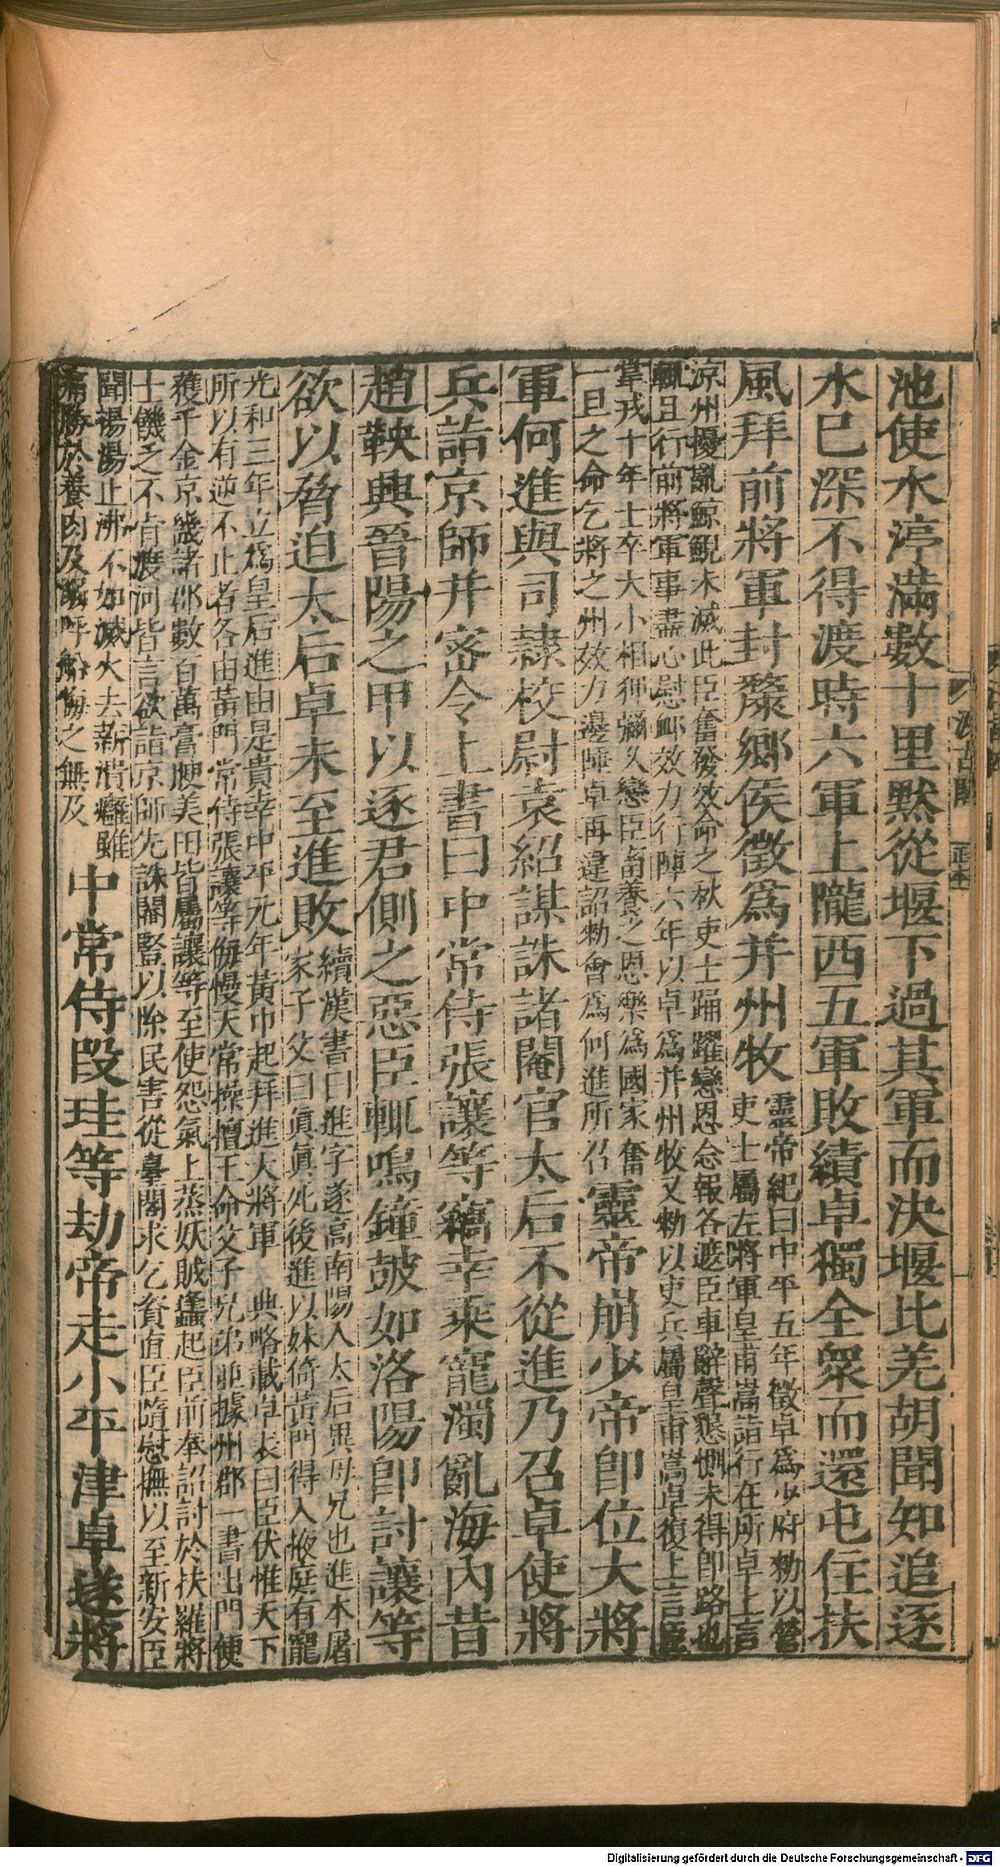 池使水渟滿數十里默從堰下過其軍而決堰比羌胡聞知追逐
水已深不得渡時六軍上隴西五軍敗績卓獨全衆而還屯住扶
風拜前將軍封斄鄉侯徵爲并州牧
靈帝紀曰中平五年徵卓爲少府勑以營
吏士屬左將軍皇甫嵩詣行在所卓上言
涼州擾亂鯨鯢未滅此臣奮發效命之秋吏士踊躍戀恩念報各遮臣車辭聲懇惻未得卽路也
輒且行前將軍事盡心慰卹效力行陣六年以卓爲并州牧又勑以吏兵屬皇甫嵩卓復上言臣
掌戎十年士卒大小相狎彌久戀臣畜養之恩樂爲國家奮
一旦之命乞將之州效力邊陲卓再違詔勑會爲何進所召
靈帝崩少帝卽位大將
軍何進與司隸校尉袁紹謀誅諸閹官太后不從進乃召卓使將
兵詣京師并密令上書曰中常侍張讓等竊幸乘寵濁亂海內昔
趙鞅興晉陽之甲以逐君側之惡臣輒鳴鐘鼓如洛陽卽討讓等
欲以脅迫太后卓未至進敗
續漢書曰進字遂高南陽人太后異母兄也進本屠
家子父曰眞眞死後進以妹倚黃門得入掖庭有寵
光和三年立爲皇后進由是貴幸中平元年黃巾起拜進大將軍 典略載卓表曰臣伏惟天下
所以有逆不止者各由黃門常侍張讓等侮慢天常操擅王命父子兄弟並據州郡一書出門便
獲千金京畿諸郡數百萬膏腴美田皆屬讓等至使怨氣上蒸妖賊蠭起臣前奉詔討於扶羅將
士饑乏不肯渡河皆言欲詣京師先誅閹豎以除民害從臺閣求乞資直臣隨慰撫以至新安臣
聞揚湯止沸不如滅火去薪潰癰雖
痛勝於養肉及溺呼船悔之無及
中常侍段珪等劫帝走小平津卓遂將
汲古閣
正本
Digitalisierung gefördert durch die Deutsche Forschungsgemeinschaft - DFG